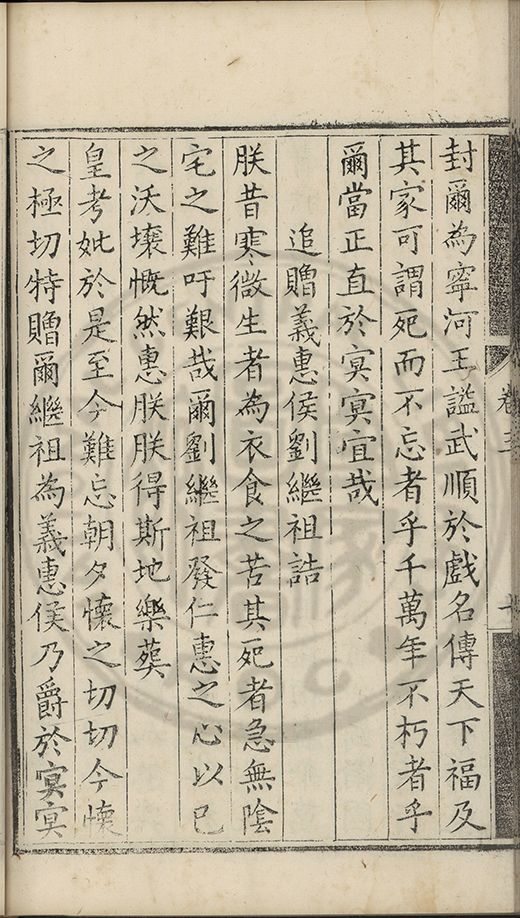 封爾為寧河王謚武順於戲名傳天下福及
其家可謂死而不忘者乎千萬年不朽者乎
爾當正直於冥冥宜哉
追贈義惠侯劉繼祖誥
朕昔寒微生者為衣食之苦其死者急無陰
宅之難吁艱哉爾劉繼祖發仁惠之心以已
之沃壤慨然惠朕朕得斯地樂葬
皇考妣於是至今難忘朝夕懷之切切今懷
之極切特贈爾繼祖為義惠侯乃爵於冥冥